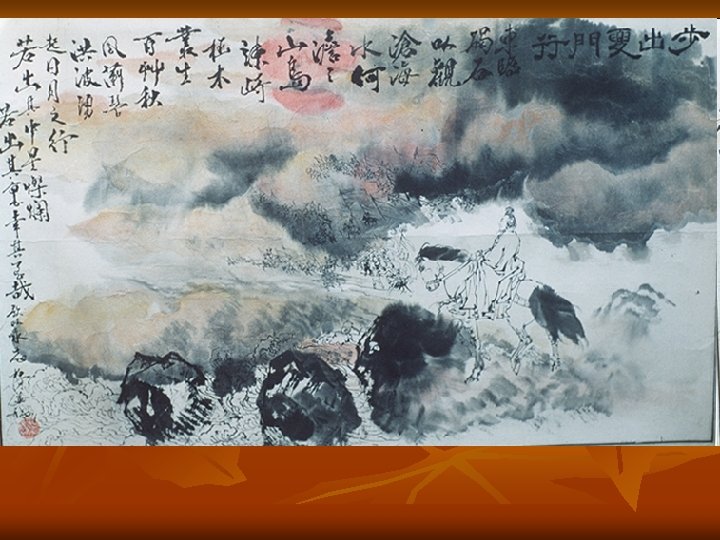 步出夏門行
東臨
碣石
以觀
滄海
水何
澹々
山島
竦峙
樹木
叢生
百艸秋
風瀟瑟
洪波湧
起日月之行
若出其中星燦爛
若出其裏幸甚至哉歌以咏志